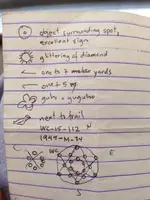 object surrounding spot,
excellent sign
glittering of diamond
one to 7 meter yards
one + 5 m
next to trail
WC-15-112 N
1944-M-34
WC E